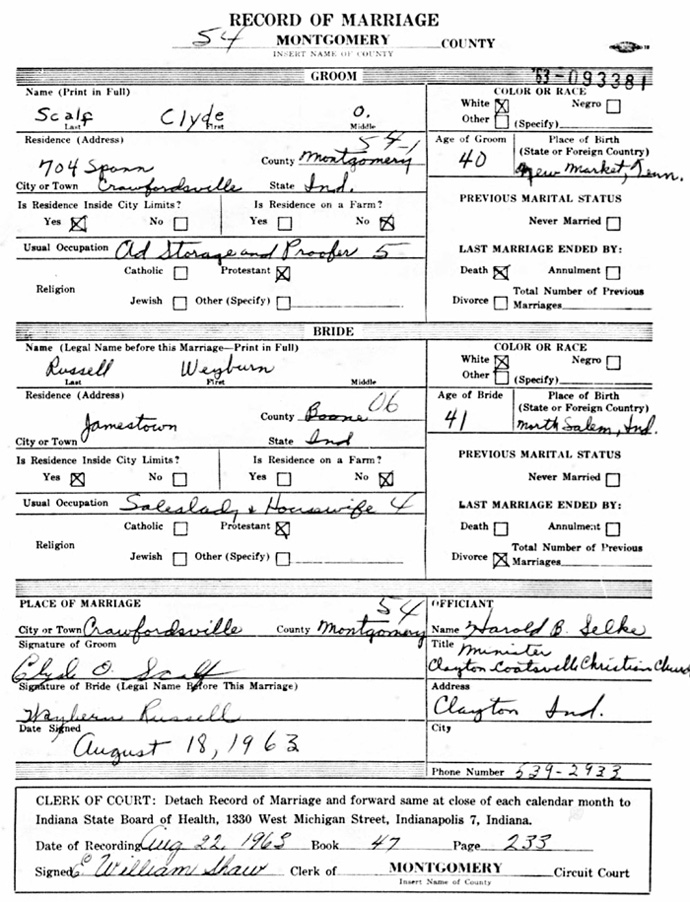 RECORD OF MARRIAGE
54 MONTGOMERY COUNTY
INSERT NAME OF COUNTY
GROOM
'63-093381
Name (Print in Full)
Scalf Clyde O.
Last First Middle
COLOR OR RACE
White ☒ Negro ☐
Other ☐ (Specify)
Residence (Address)
54-1
704 Spann County Montgomery
City or Town Crawfordsville State Ind.
Age of Groom 40
Place of Birth
(State or Foreign Country)
New Market, Tenn.
Is Residence Inside City Limits? Is Residence on a Farm?
Yes ☒ No ☐ Yes ☐ No ☒
PREVIOUS MARITAL STATUS
Never Married ☐
Usual Occupation Ad Storage and Proofer 5
LAST MARRIAGE ENDED BY:
Religion
Catholic ☐ Protestant ☒
Jewish ☐ Other (Specify) ☐
Death ☒ Annulment ☐
Divorce ☐ Total Number of Previous
Marriages
BRIDE
Name (Legal Name before this Marriage—Print in Full)
Russell Weyburn
Last First Middle
COLOR OR RACE
White ☒ Negro ☐
Other ☐ (Specify)
Residence (Address)
County Boone 06
City or Town Jamestown State Ind
Age of Bride 41
Place of Birth
(State or Foreign Country)
North Salem, Ind.
Is Residence Inside City Limits? Is Residence on a Farm?
Yes ☒ No ☐ Yes ☐ No ☒
PREVIOUS MARITAL STATUS
Never Married ☐
Usual Occupation Saleslady & Housewife 4
LAST MARRIAGE ENDED BY:
Religion
Catholic ☐ Protestant ☒
Jewish ☐ Other (Specify) ☐
Death ☐ Annulment ☐
Divorce ☒ Total Number of Previous
Marriages
PLACE OF MARRIAGE
54
City or Town Crawfordsville County Montgomery
Signature of Groom
Clyde O. Scalf
Signature of Bride (Legal Name Before This Marriage)
Weybern Russell
Date Signed
August 18, 1963
OFFICIANT
Name Harold B. Selke
Title Minister
Clayton Coatsvill Christian Church
Address
Clayton Ind.
City
Phone Number 539-2933
CLERK OF COURT: Detach Record of Marriage and forward same at close of each calendar month to
Indiana State Board of Health, 1330 West Michigan Street, Indianapolis 7, Indiana.
Date of Recording Aug 22, 1963 Book 47 Page 233
Signed E William Shaw Clerk of MONTGOMERY Circuit Court
Insert Name of County